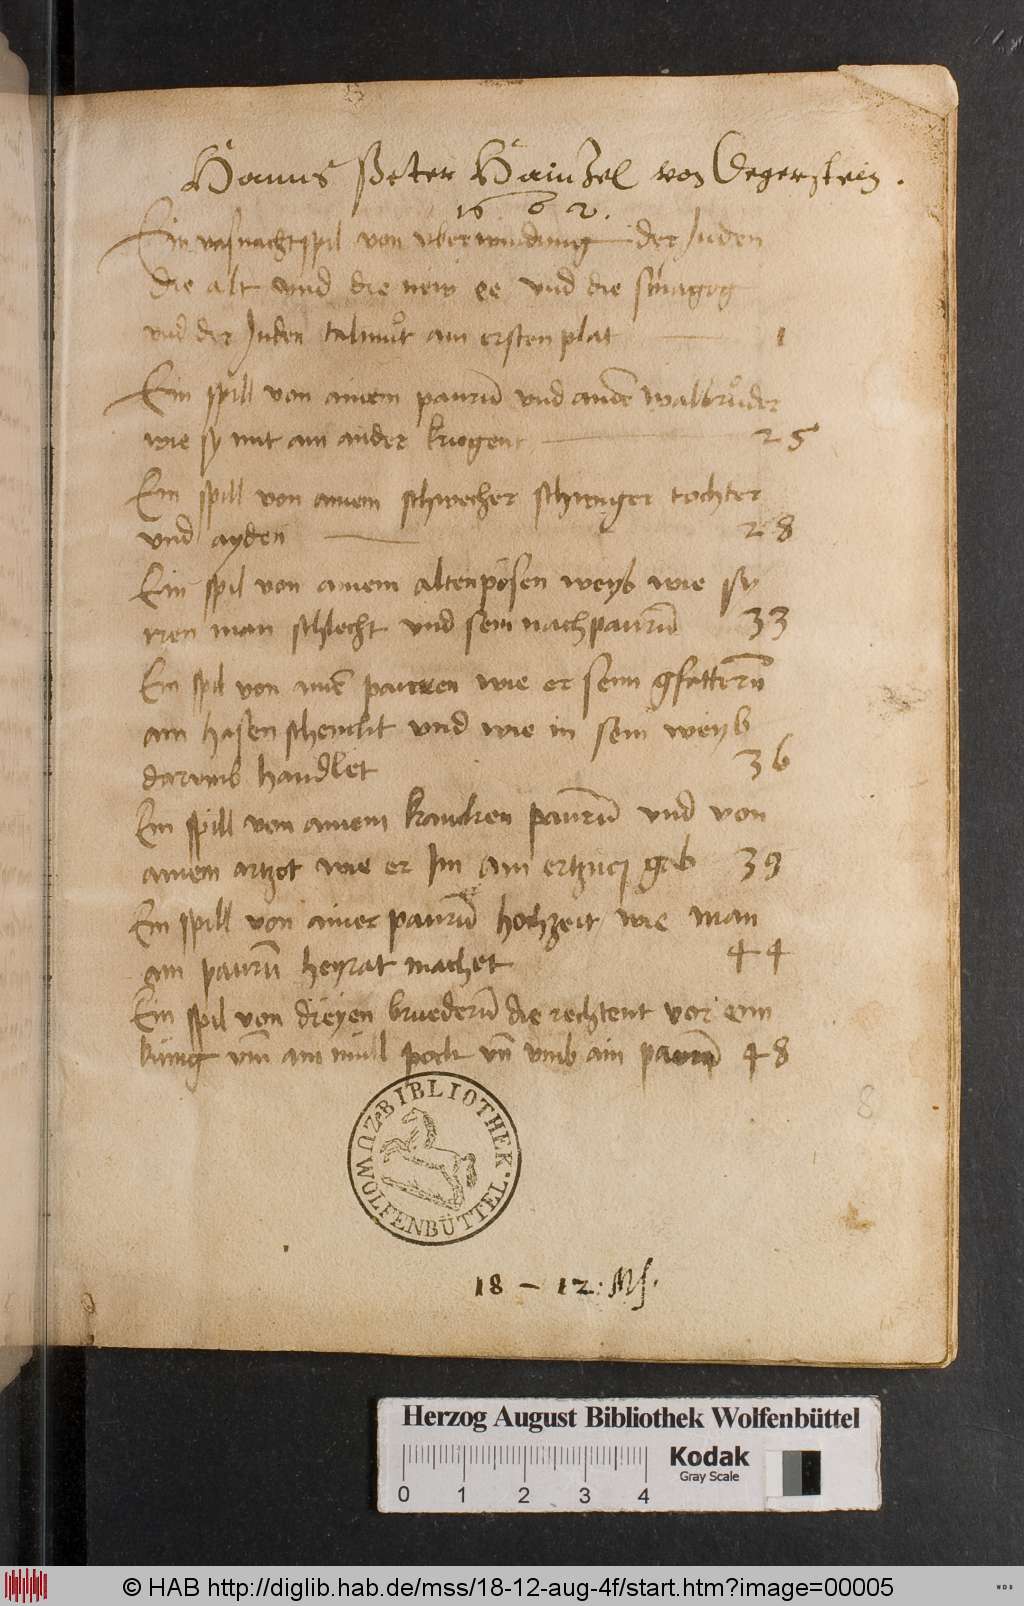 Hanns Peter Hainzel von Degerstein.
1602.
Ein vasnachtspil von vberwindung der Juden
die alt vnd die new ee vnd die sinagog
vnd der Juden talmut am ersten plat 1
Ein spill von ainem paurn̄ vnd
wie sy mit an ander kriegent 25
Ein spill von ainem schwecher schwiger tochter
vnd ayden 28
Ein spil von ainem alten pösen weyb wie sy
iren man schlecht vnd sein nachpaurn̄ 33
Ein spil von aine pauren wie er seim gfattern̄
ain hasen schenckt vnd wie in sein weyb
darumb handlet 36
Ein spill von ainem krancken paurn̄ vnd von
ainem artzot wie er Im ain ertzney gab 39
Ein spill von ainer paurn̄ hochzeit wie man
ain paurn̄ heyrat machet 44
Ein spil von dreyen bruedern̄ die rechtent vor eim
küng vm̄ ain müll pock vn̄ vmb ain paurn̄ 48
8
BIBLIOTHEK
ZU
WOLFENBÜTTEL.
18 – 12. Ms.
Herzog August Bibliothek Wolfenbüttel
Kodak
Gray Scale
0 1 2 3 4
© HAB http://diglib.hab.de/mss/18-12-aug-4f/start.htm?image=00005